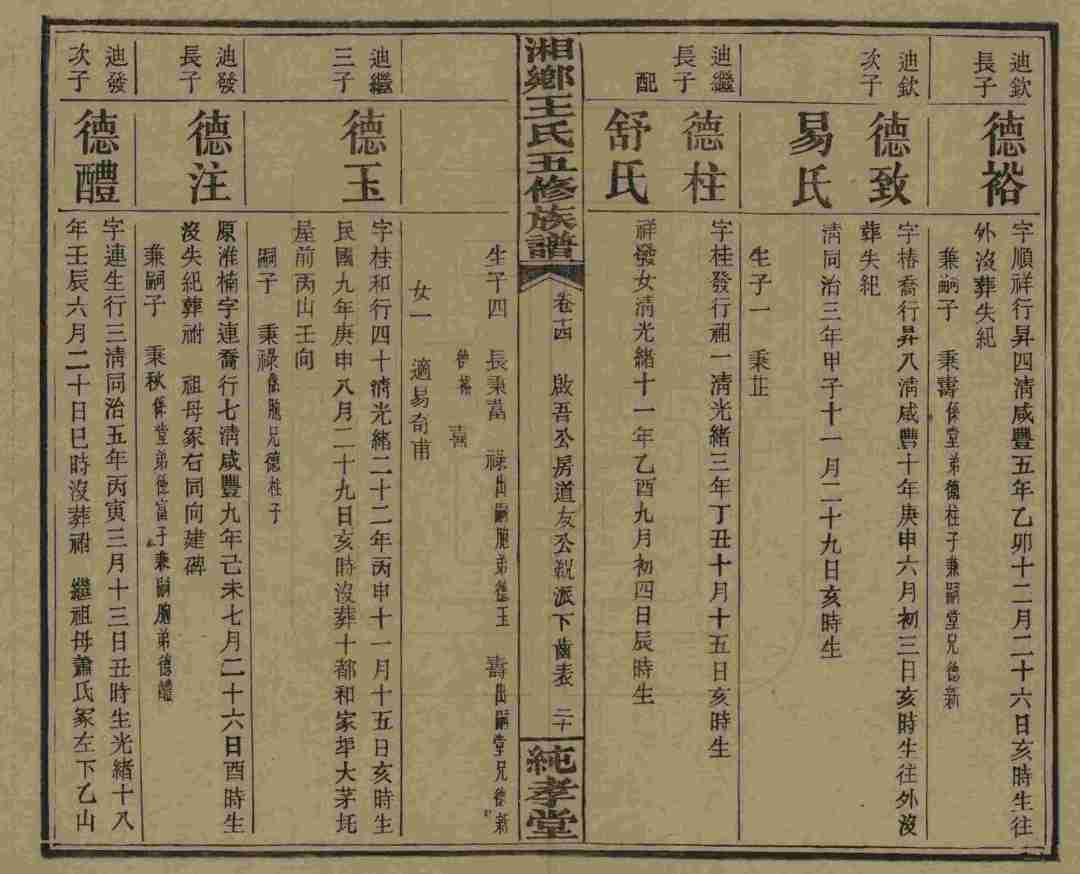 迪欽
長子
德裕
字順祥行昇四清咸豐五年乙卯十二月二十六日亥時生往
外沒葬失紀
兼嗣子　秉壽係堂弟德柱子兼嗣堂兄德新
迪欽
次子
德致
字椿喬行昇八清咸豐十年庚申六月初三日亥時生往外沒
葬失紀
易氏
清同治三年甲子十一月二十九日亥時生
生子一　秉芷
迪繼
長子
德柱
字桂發行祖一清光緒三年丁丑十月十五日亥時生
配
舒氏
祥發女清光緒十一年乙酉九月初四日辰時生
湘鄉王氏五修族譜
卷十四　啟吾公房道友公親派下齒表　二十
純孝堂
生子四　長秉富　祿出嗣胞弟德玉　壽出嗣堂兄德新
德裕　喜
女一　適易奇甫
迪繼
三子
德玉
字桂和行四十清光緒二十二年丙申十一月十五日亥時生
民國九年庚申八月二十九日亥時沒葬十都和家坪大茅坵
屋前丙山壬向
嗣子　秉祿係胞兄德柱子
迪發
長子
德注
原淮楠字連喬行七清咸豐九年己未七月二十六日酉時生
沒失紀葬祔　祖母冢右同向建碑
兼嗣子　秉秋係堂弟德富子兼嗣胞弟德醴
迪發
次子
德醴
字連生行三清同治五年丙寅三月十三日丑時生光緒十八
年壬辰六月二十日巳時沒葬祔　繼祖母蕭氏冢左下乙山